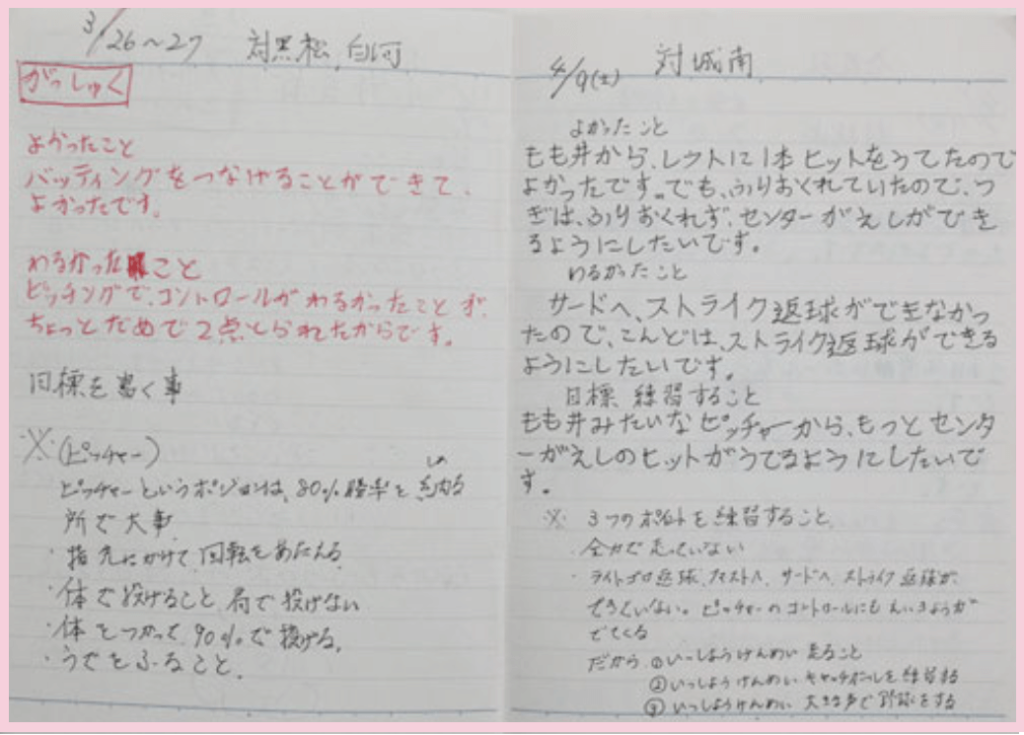 3/26〜27 対黒松、白河
がっしゅく
よかったこと
バッティングをつなげることができて、
よかったです。
わるかったこと
ピッチングで、コントロールがわるかったことが、
ちょっとだめで2点とられたからです。
目標を書く事
※(ピッチャー)
しめ
ピッチャーというポジションは、80%勝率を締める
所で大事
・指先にかけて、回転をあたえる
・体で投げること、肩で投げない
・体をつかって、90%で投げる。
・うでをふること。
4/9(土) 対城南
よかったこと
もも井から、レクトに1本ヒットをうてたので
よかったです。でも、ふりおくれていたので、つ
ぎは、ふりおくれず、センターがえしができ
るようにしたいです。
わるかったこと
サードへ、ストライク返球ができなかっ
たので、こんどは、ストライク返球ができる
ようにしたいです。
目標、練習すること
もも井みたいなピッチャーから、もっとセンタ
ーがえしのヒットがうてるようにしたいで
す。
※ 3つのポイントを練習すること
・全力で走っていない
・ライトゴロ返球、ファストへ、サードへ、ストライク返球が、
できていない。ピッチャーのコントロールにもえいきょうが
でてくる
だから ①いっしょうけんめい 走ること
②いっしょうけんめい キャッチボールを練習する
③いっしょうけんめい 大きな声で野球をする